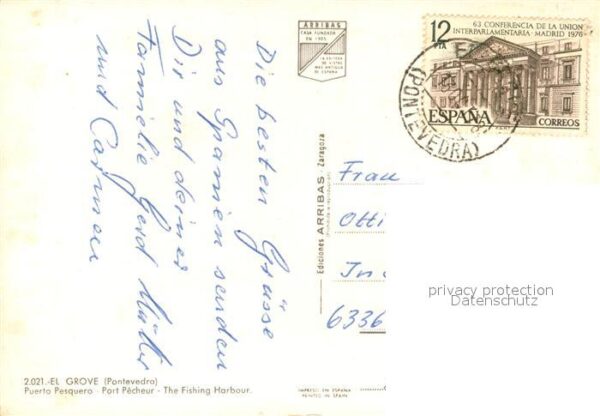 Die besten Grüsse
aus Spanien senden
Dir und deiner
Familie Gerd Müller
und Carmen
ARRIBAS
CASA FUNDADA
EN 1905
LA EDITORA
DE VISTAS
MAS ANTIGUA
DE ESPAÑA
Ediciones ARRIBAS - Zaragoza
63 CONFERENCIA DE LA UNION
INTERPARLAMENTARIA - MADRID 1976
12
PTA
ESPAÑA
CORREOS
(PONTEVEDRA)
Frau
Otti
In
6336
privacy protection
Datenschutz
2.021.-EL GROVE (Pontevedra)
Puerto Pesquero - Port Pêcheur - The Fishing Harbour.
IMPRESO EN ESPAÑA
PRINTED IN SPAIN